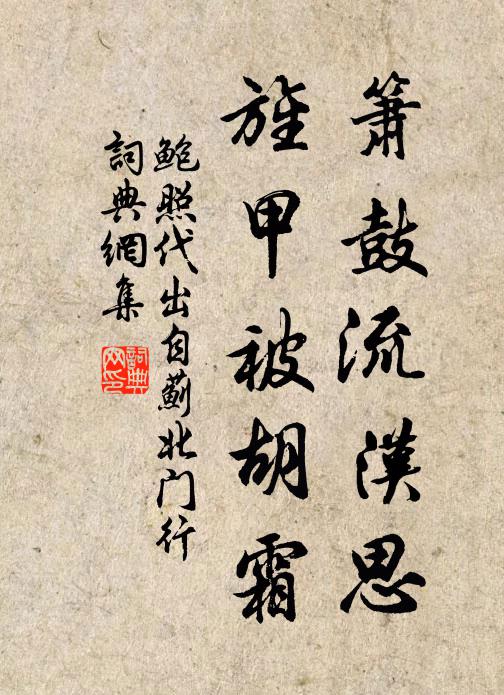 簫鼓流漢思
旌甲被胡霜
鮑照代出自薊北门行
詞典網集
詞典网印